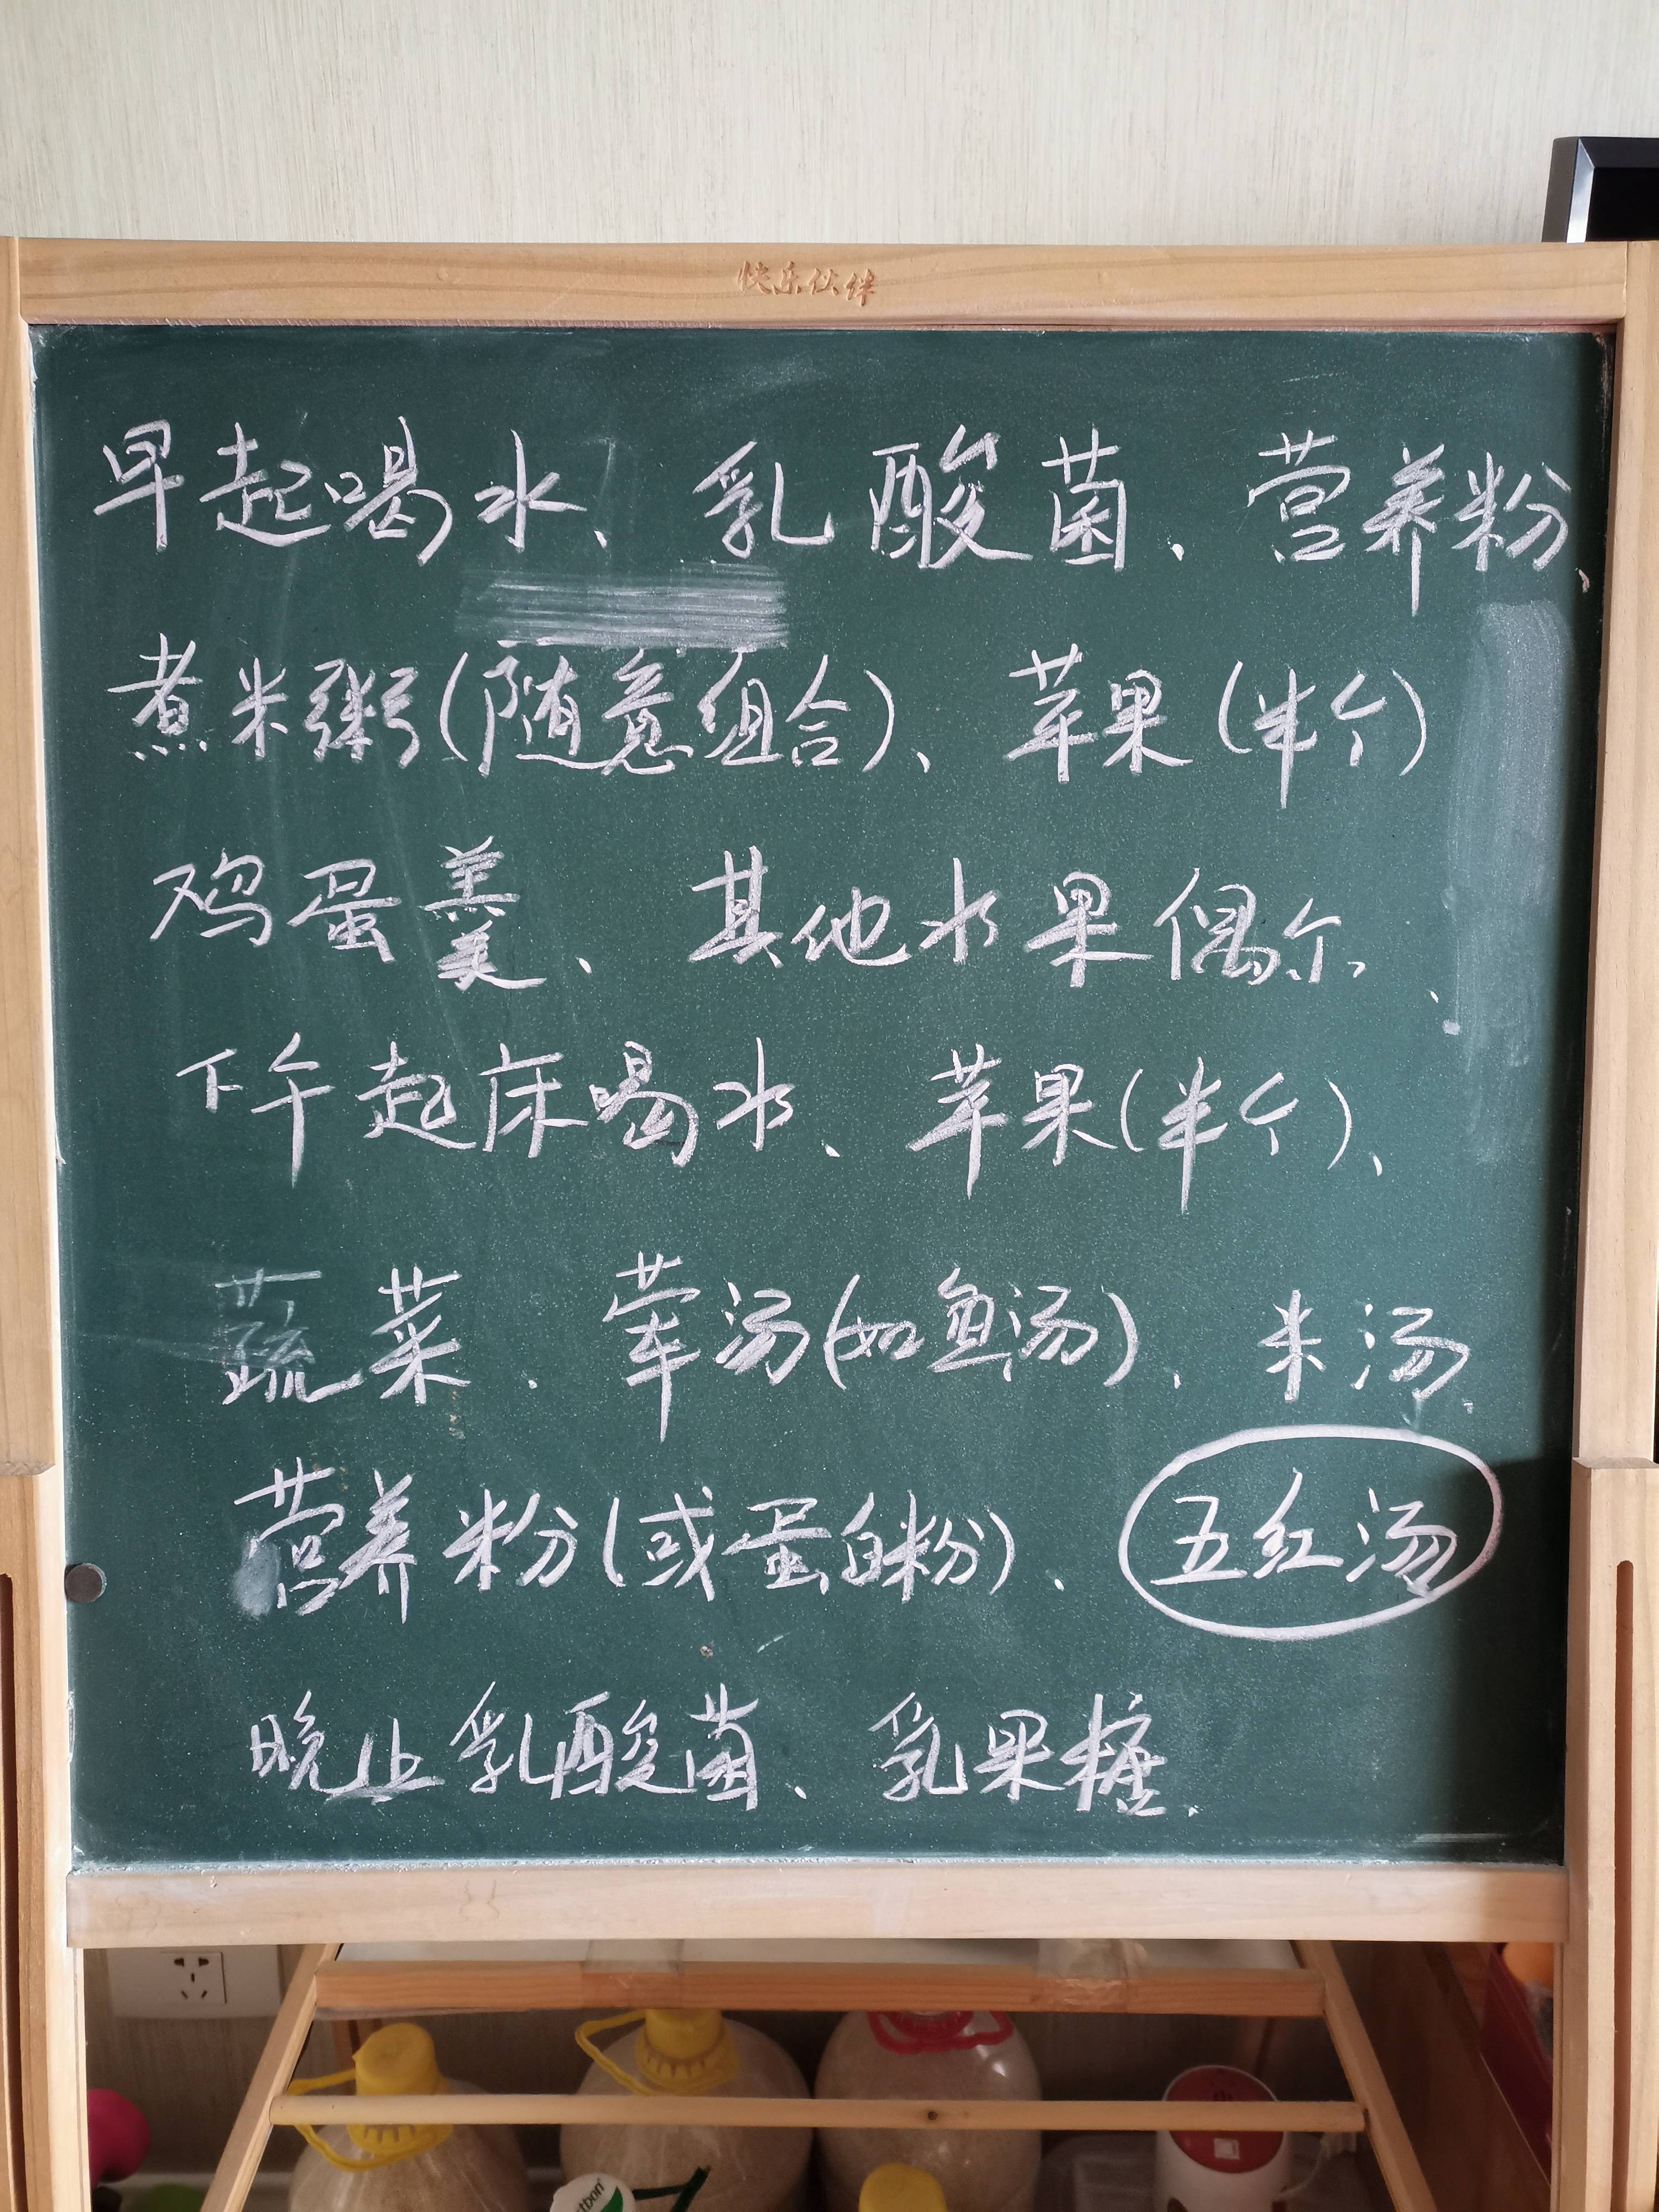 快乐伙伴
早起喝水、乳酸菌、营养粉、
煮米粥(随意组合)、苹果(半个)
鸡蛋羹、其他水果偶尔、
下午起床喝水、苹果(半个)、
蔬菜、荤汤(如鱼汤)、米汤、
营养粉(或蛋白粉)、五红汤
晚上乳酸菌、乳果糖.